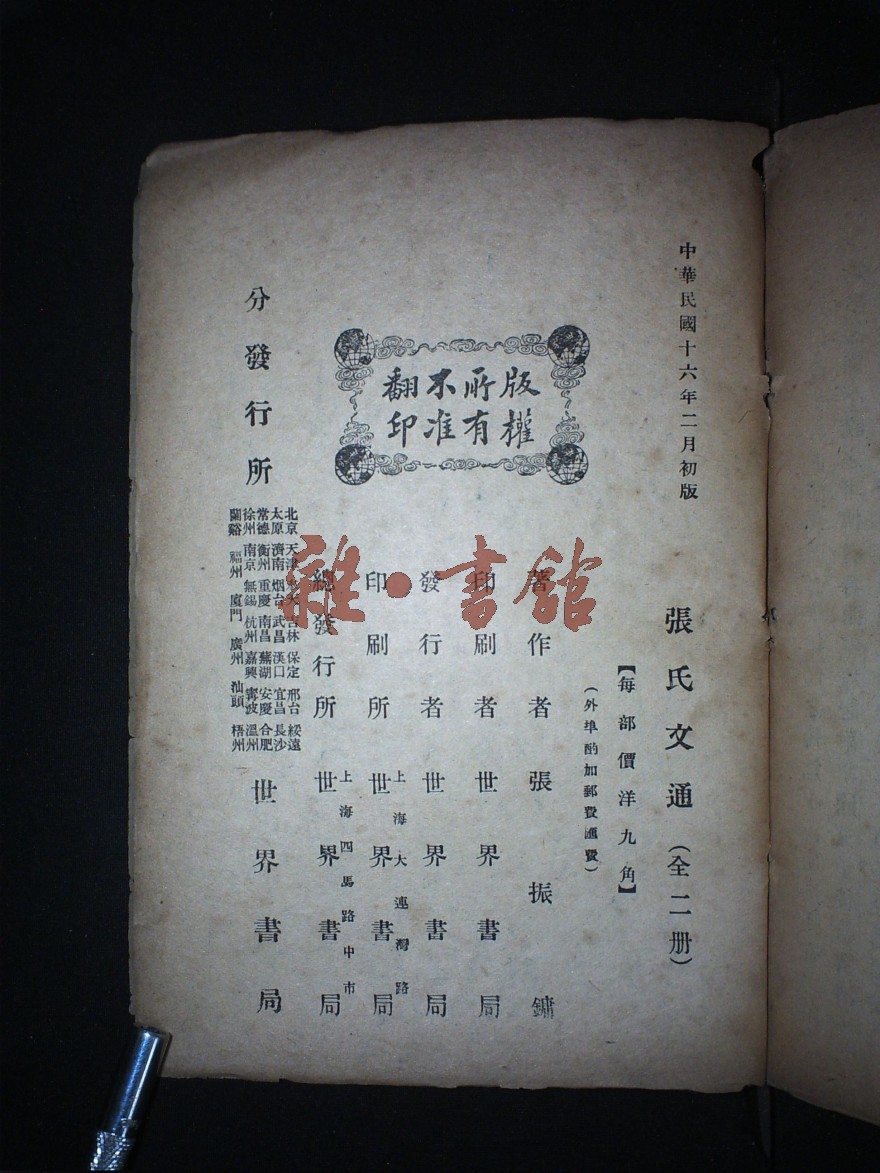 中華民國十六年二月初版
張氏文通（全二册）
【每部價洋九角】
（外埠酌加郵費匯費）
著作者 張振鏞
印刷者 世界書局
發行者 世界書局
上海大連灣路
印刷所 世界書局
上海四馬路中市
總發行所 世界書局
版權
所有
不准
翻印
分發行所
北京 天津 天 吉林 保定 邢台 綏遠
太原 濟南 烟台 武昌 漢口 宜昌 長沙
常德 衡州 重慶 南昌 蕪湖 安慶 合肥
徐州 南京 無錫 杭州 嘉興 寗波 溫州
蘭谿 福州 廈門 廣州 汕頭 梧州
世界書局
雜·書館